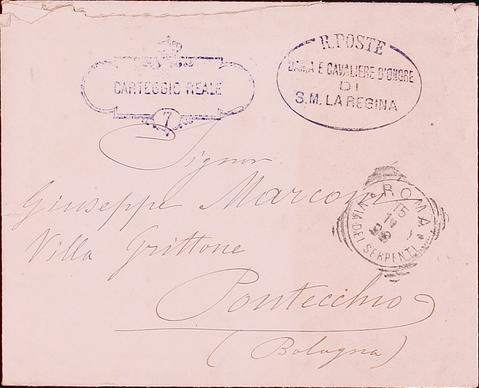 R. POSTE
DAMA E CAVALIERE D'ONORE
DI
S. M. LA REGINA
CARTEGGIO REALE
7
Signor
Giuseppe Marconi
Villa Grittone
Pontecchio
(Bologna)
ROMA
VIA DEI SERPENTI